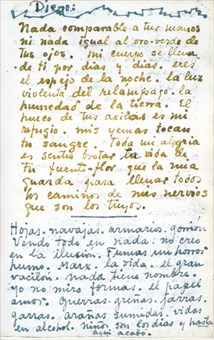 Diego:
Nada comparable a tus manos
ni nada igual al oro-verde de
tus ojos. mi cuerpo se llena
de ti por días y días. eres
el espejo de la noche. la luz
violenta del relámpago. la
humedad de la tierra. El
hueco de tus axilas es mi
refugio. mis yemas tocan
tu sangre. Toda mi alegría
es sentir brotar la vida de
tu fuente-flor que la mia
guarda para llenar todos
los caminos de mis nervios
que son los tuyos.
Hojas. navajas. armarios. gorrión
Vendo todo en nada. no creo
en la ilusión. Fumas un horror
humo. Marx. la vida. el gran
vacilón. nada tiene nombre.
yo no miro formas. el papel
amor. guerras. greñas. jarras.
garras. arañas sumidas. vidas
en alcohol. niños son los días y hasta
aquí acabó.